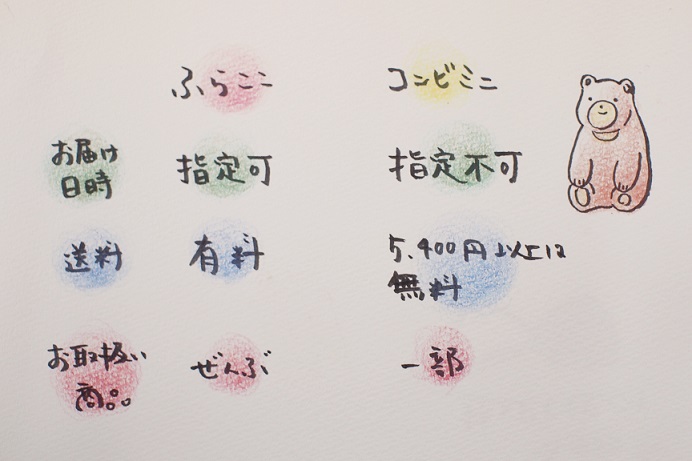 ふらここ コンビミニ
お届け
日時 指定可 指定不可
送料 有料 5,400円以上は
無料
お取扱い
商品 ぜんぶ 一部